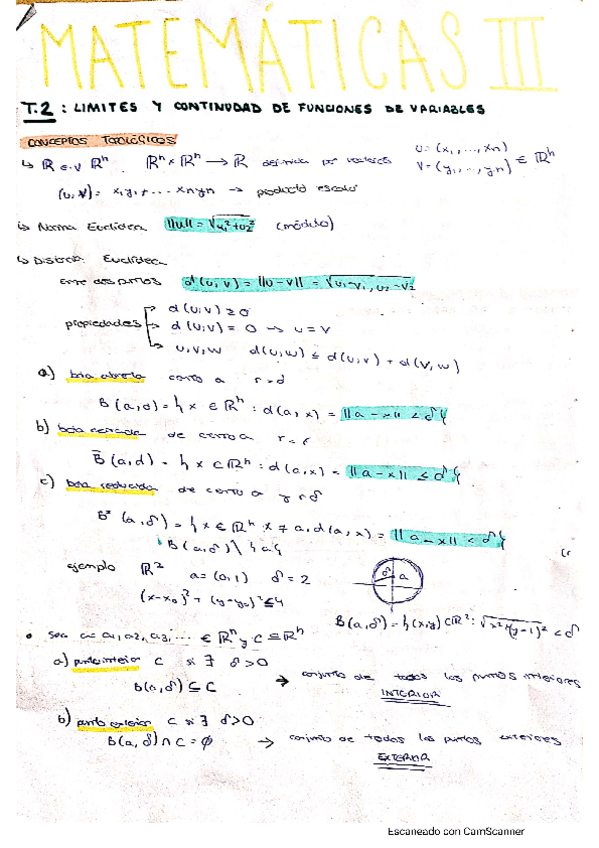 MATEMÁTICAS III
T.2 : LIMITES Y CONTINUIDAD DE FUNCIONES DE VARIABLES
CONCEPTOS TOPOLÓGICOS
↳ R e.v Rⁿ Rⁿ x Rⁿ → R definida por vectores u = (x₁, ..., xn) V = (y₁, ..., yn) ∈ Rⁿ
(u, v) = x₁y₁ + ... xnyn → producto escalar
↳ Norma Euclídea ||u|| = √u₁²+u₂² (módulo)
↳ Distancia Euclídea
Entre dos puntos d(u,v) = ||u-v|| = √u₁-v₁, u₂-v₂
propiedades
d(u,v) ≥ 0
d(u,v) = 0 → u = v
u,v,w d(u,w) ≤ d(u,v) + d(v,w)
a) bola abierta centro a r=δ
B(a,δ) = { x ∈ Rⁿ : d(a,x) = ||a-x|| < δ }
b) bola cerrada de centro a r=
B̄(a,δ) = { x ⊂ Rⁿ : d(a,x) = ||a-x|| ≤ δ }
c) bola reducida de centro a y r δ
B* (a,δ) = { x ∈ Rⁿ x ≠ a, d(a,x) = ||a-x|| < δ }
B(a,δ) \ {a}
ejemplo R² a = (0,1) δ = 2
(x-x₀)² + (y-y₀)² ≤ 4
δ a
B(a,δ) = { (x,y) ⊂ R² : √x²+(y-1)² < δ
• Sea a = a₁, a₂, a₃, ... ∈ Rⁿ y C ⊆ Rⁿ
a) punto interior C si ∃ δ>0
B(a,δ) ⊆ C → conjunto de todos los puntos interiores
INTERIOR
b) punto exterior C si ∃ δ>0
B(a,δ) ∩ C = ∅ → conjunto de todos los puntos exteriores
EXTERIOR
Escaneado con CamScanner